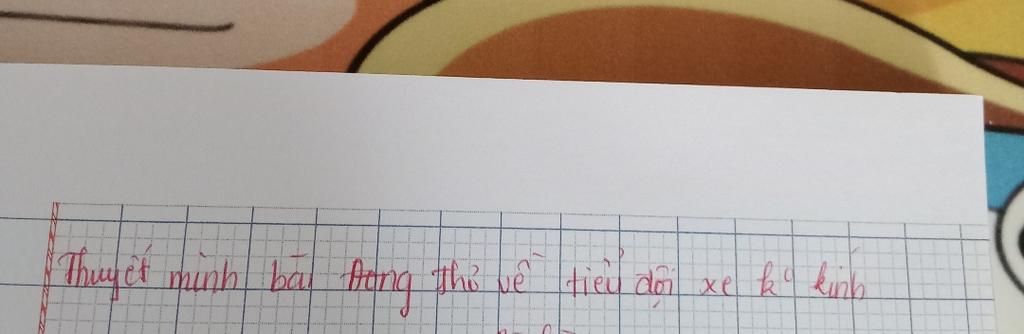 Thuyết minh bài thơ về tiểu đội xe kº kính